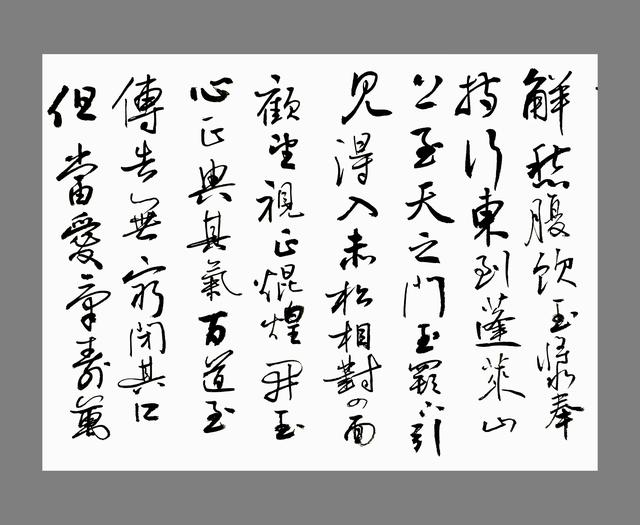 解愁腹飲玉漿奉
持行東到蓬萊山
上至天之門玉闕下引
見得入赤松相對四面
顧望視正焜煌開玉
心正興其氣百道至
傳告無窮閉其口
但當愛氣壽萬